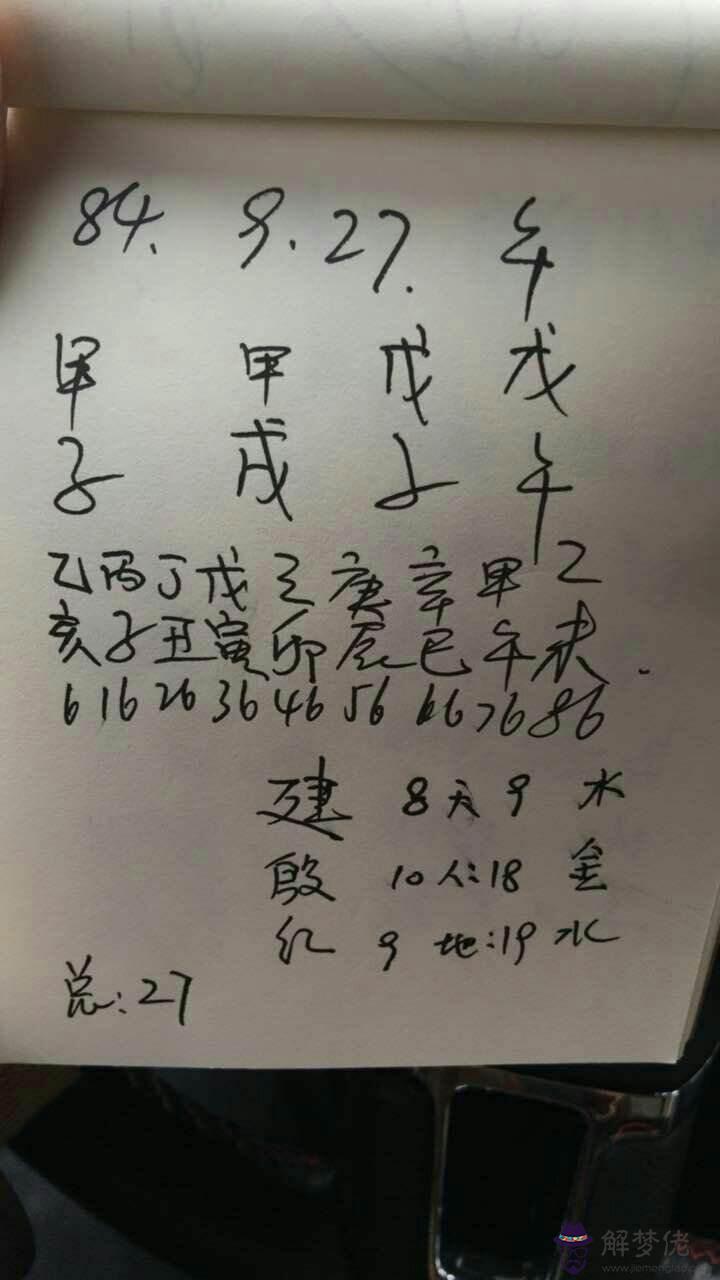 84. 9. 27. 午
甲 甲 戊 戊
子 戌 子 午
乙 丙 丁 戊 己 庚 辛 甲 乙
亥 子 丑 寅 卯 辰 巳 午 未.
6 16 26 36 46 56 66 76 86
建 8 天 9 水
殷 10 人:18 金
红 9 地:19 水
总:27
解梦佬
www.jiemenglao.com